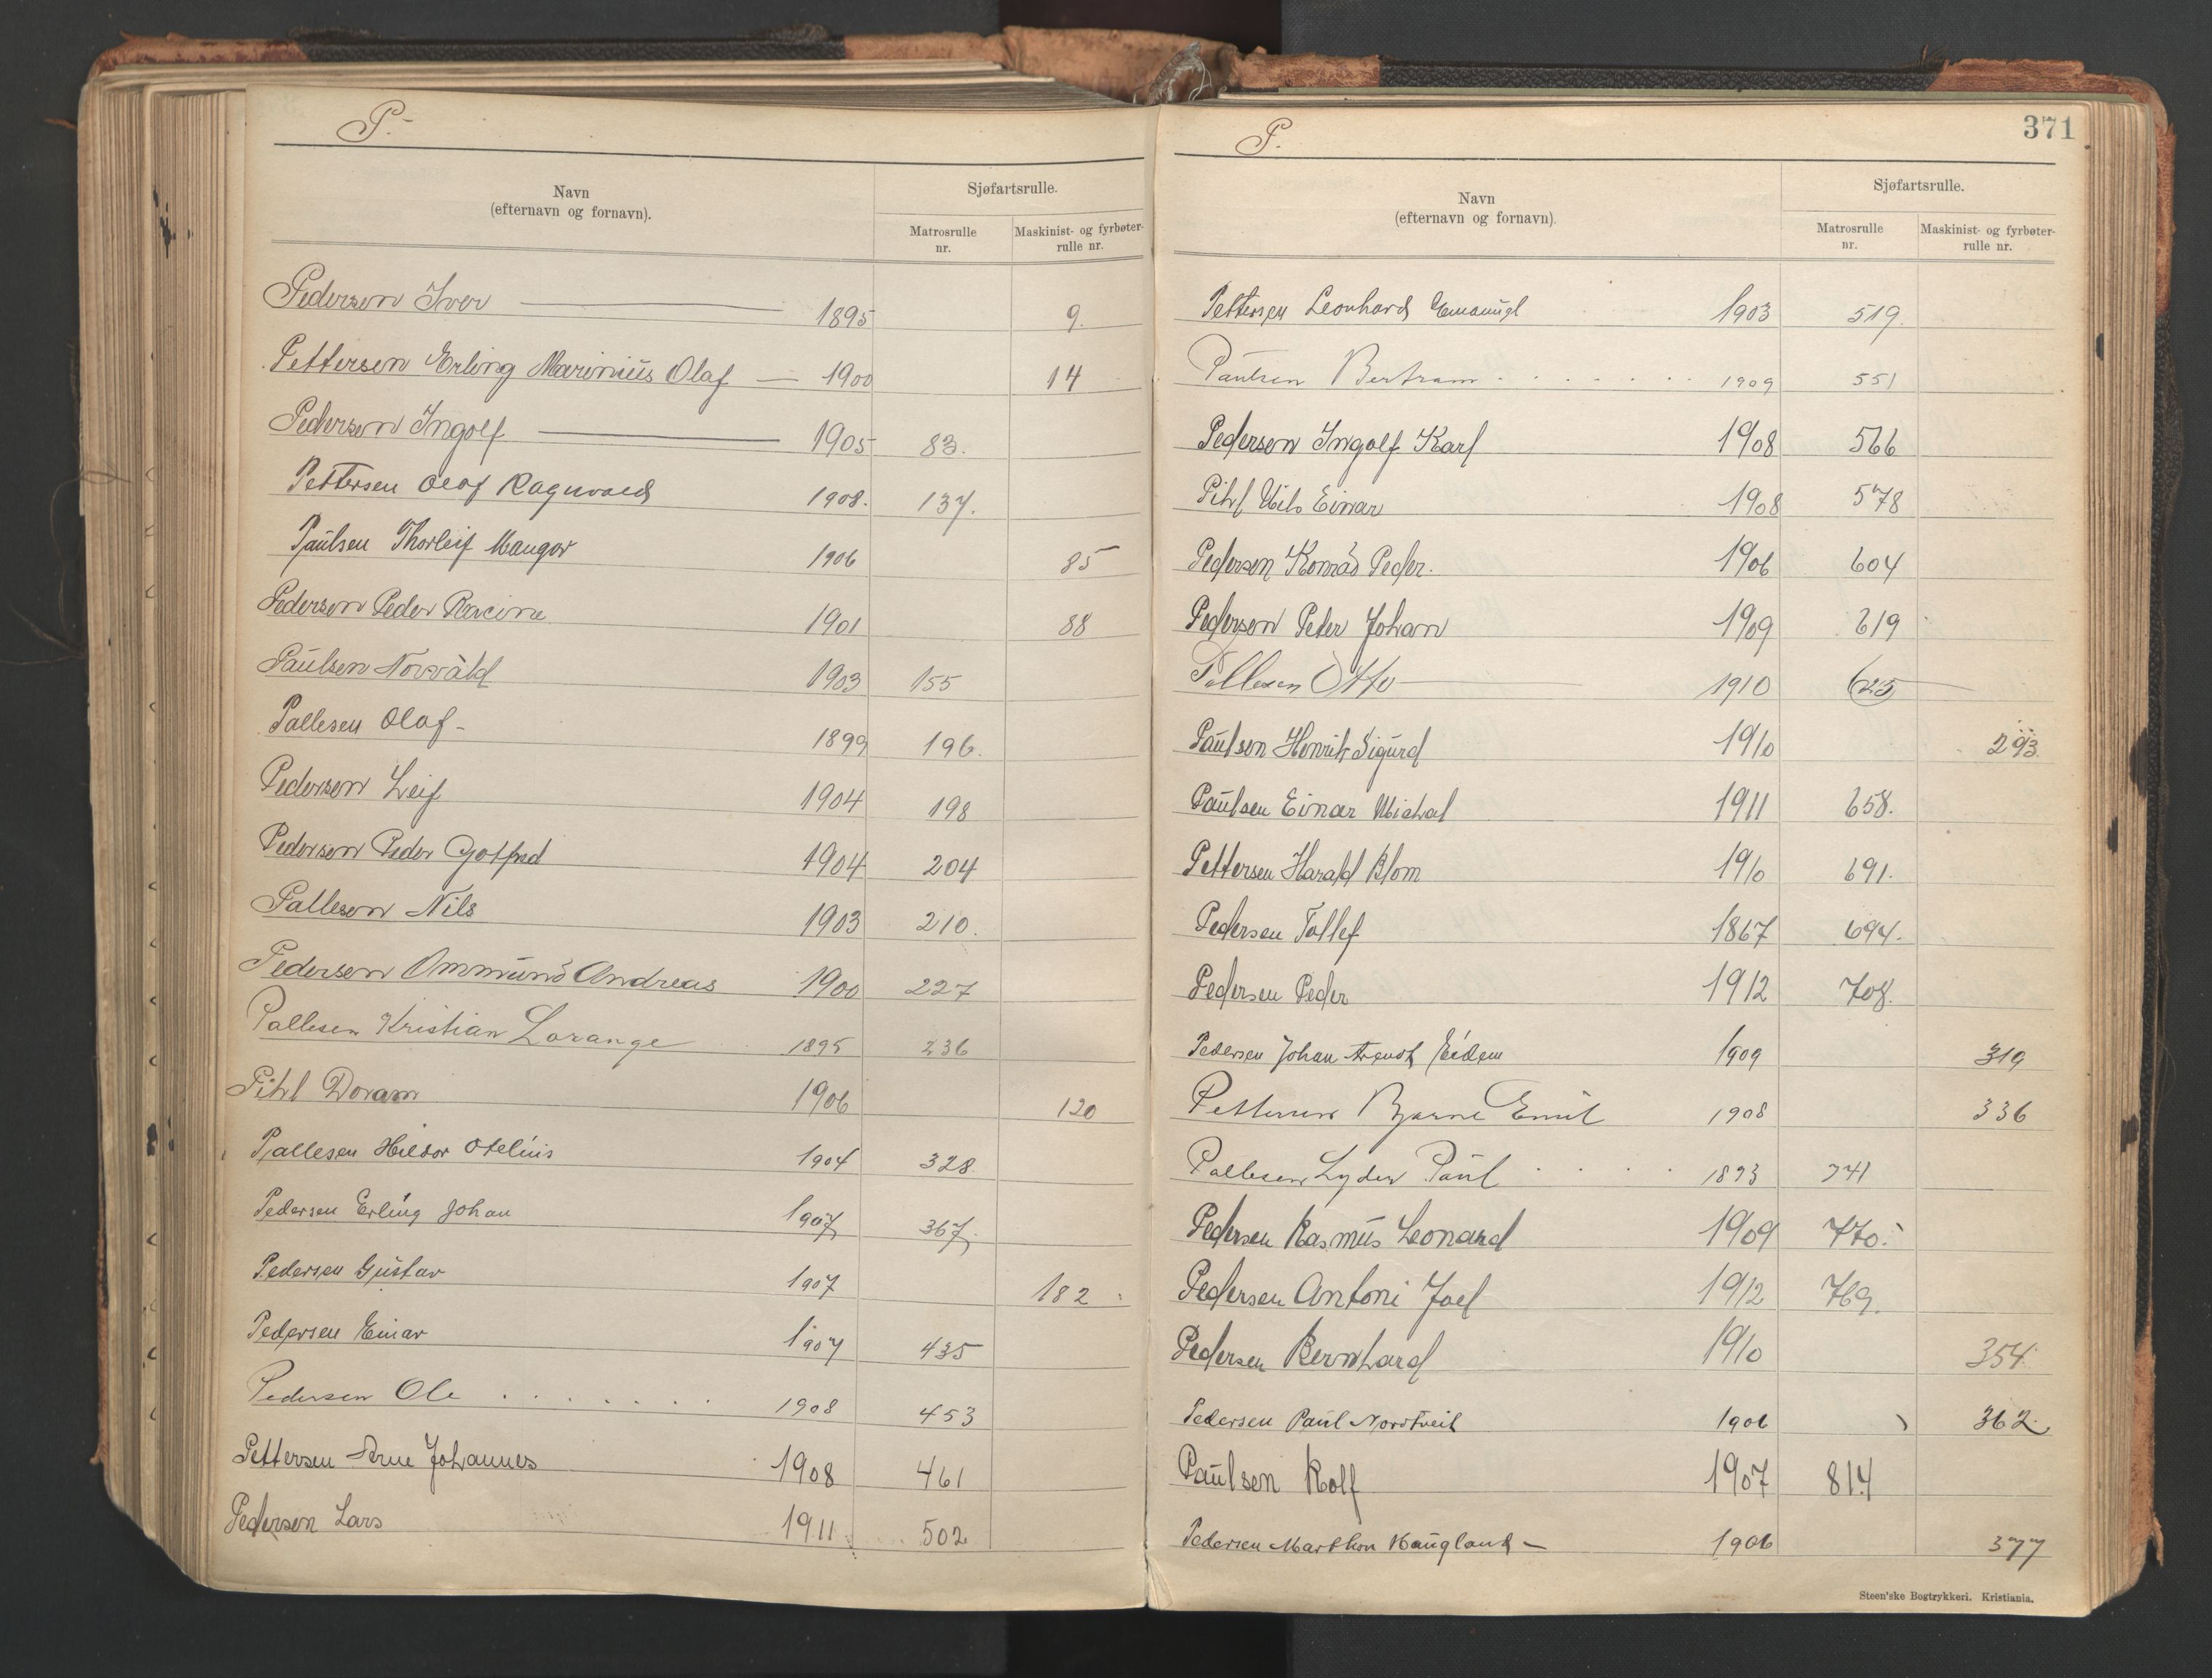 P.-
Navn
(efternavn og fornavn).
Sjøfartsrulle.
Matrosrulle
nr.
Maskinist- og fyrbøter-
rulle nr.
Pedersen Iver 1895 9.
Pettersen Erling Marinius Olaf — 1900 14
Pedersen Ingolf 1905 83.
Pettersen Olaf Ragnvald 1908. 137.
Paulsen Thorleif Mangor 1906 85
Pedersen Peder 1901 88
Paulsen Norvald 1903 155
Pallesen Olaf - 1899 196.
Pedersen Leif 1904 198
Pedersen Peder Gotfred 1904 204
Pallesen Nils 1903 210.
Pedersen Ommund Andreas 1900 227
Pallesen Kristian Lorange 1895 236
Pihl Doram 1906 120
Pallesen Hildor Otelius 1904 328
Pedersen Erling Johan 1907 367.
Pedersen Gustav 1907 182
Pedersen Einar 1907 435
Pedersen Ole . . . . . . 1908 453
Pettersen Arne Johannes 1908 461
Pedersen Lars 1911 502
P.
371
Navn
(efternavn og fornavn).
Sjøfartsrulle.
Matrosrulle
nr.
Maskinist- og fyrbøter-
rulle nr.
Pettersen Leonhard Emanuel 1903 519.
Paulsen Bertram . . . . . . . 1909 551
Pedersen Ingolf Karl 1908 566
Pihl Nils Einar 1908 578
Pedersen Konrad Peder. 1906 604
Pedersen Peter Johan 1909 619
Pallesen Otto 1910 625
Paulsen Henrik Sigurd 1910 293.
Paulsen Einar Michal 1911 658.
Pettersen Harald Blom 1910 691.
Pedersen Tollef 1867 694.
Pedersen Peder 1912 708.
Pedersen Johan Arendt Eidem 1909 319
Pettersen Bjarne Emil 1908 336
Pallesen Lyder Paul . . . . 1893 741
Pedersen Rasmus Leonard 1909 770.
Pedersen Antoni Joel 1912 769.
Pedersen Bernhard 1910 354.
Pedersen Paul Nordtveit 1906 362.
Paulsen Rolf 1907 814
Pedersen Marthon Haugland — 1906 377
Steen'ske Bogtrykkeri. Kristiania.